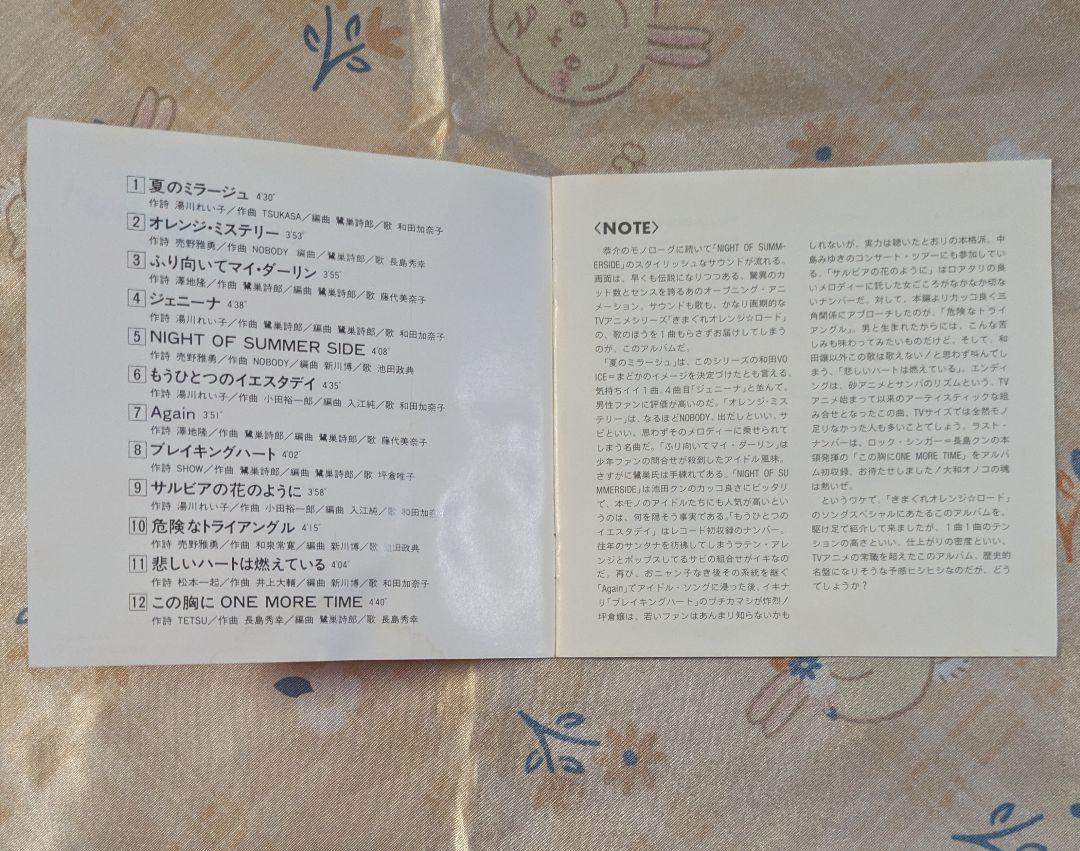 1 夏のミラージュ 4'30"
作詩 湯川れい子／作曲 TSUKASA／編曲 鷺巣詩郎／歌 和田加奈子
2 オレンジ・ミステリー 3'53"
作詩 売野雅勇／作曲 NOBODY 編曲／鷺巣詩郎／歌 長島秀幸
3 ふり向いてマイ・ダーリン 3'55"
作詩 澤地隆／作曲 鷺巣詩郎／編曲 鷺巣詩郎／歌 藤代美奈子
4 ジェニーナ 4'38"
作詩 湯川れい子／作曲 鷺巣詩郎／編曲 鷺巣詩郎／歌 和田加奈子
5 NIGHT OF SUMMER SIDE 4'08"
作詩 売野雅勇／作曲 NOBODY／編曲 新川博／歌 池田政典
6 もうひとつのイエスタデイ 4'35"
作詩 湯川れい子／作曲 小田裕一郎／編曲 入江純／歌 和田加奈子
7 Again 3'51"
作詩 澤地隆／作曲 鷺巣詩郎／編曲 鷺巣詩郎／歌 藤代美奈子
8 ブレイキングハート 4'02"
作詩 SHOW／作曲 鷺巣詩郎／編曲 鷺巣詩郎／歌 坪倉唯子
9 サルビアの花のように 3'58"
作詩 湯川れい子／作曲 小田裕一郎／編曲 入江純／歌 和田加奈子
10 危険なトライアングル 4'15"
作詩 売野雅勇／作曲 和泉常寛／編曲 新川博／歌 池田政典
11 悲しいハートは燃えている 4'04"
作詩 松本一起／作曲 井上大輔／編曲 新川博／歌 和田加奈子
12 この胸に ONE MORE TIME 4'40"
作詩 TETSU／作曲 長島秀幸／編曲 鷺巣詩郎／歌 長島秀幸
〈NOTE〉
恭介のモノローグに続いて「NIGHT OF SUMM-
ERSIDE」のスタイリッシュなサウンドが流れる。
画面は、早くも伝説になりつつある、驚異のカ
ット数とセンスを誇るあのオープニング・アニ
メーション。サウンドも歌も、かなり画期的な
TVアニメシリーズ「きまぐれオレンジ☆ロード」
の、歌のほうを1曲もらさずお届けしてしまう
のが、このアルバムだ。
「夏のミラージュ」は、このシリーズの和田VO
ICE=まどかのイメージを決定づけたとも言える、
気持ちイイ1曲。4曲目「ジェニーナ」と並んで、
男性ファンに評価が高いのだ。「オレンジ・ミス
テリー」は、なるほどNOBODY、出だしといい、サ
ビといい、思わずそのメロディーに乗せられて
しまう名曲だ。「ふり向いてマイ・ダーリン」は
少年ファンの問合せが殺到したアイドル風味。
さすがに鷺巣氏は手練れである。「NIGHT OF SU
MMERSIDE」は池田クンのカッコ良さにピッタリ
で、本モノのアイドルたちにも人気が高いとい
うのは、何を隠そう事実である。「もうひとつの
イエスタデイ」はレコード初収録のナンバー。
往年のサンタナを彷彿してしまうラテン・アレ
ンジとポップスしてるサビの組合せがイキなの
だ。再び、おニャン子なき後その系統を継ぐ
「Again」でアイドル・ソングに浸った後、イキナ
リ「ブレイキングハート」のブチカマシが炸烈！
坪倉嬢は、若いファンはあんまり知らないかも
しれないが、実力は聴いたとおりの本格派。中
島みゆきのコンサート・ツアーにも参加してい
る。「サルビアの花のように」はロアタリの良
いメロディーに託した女ごころがなかなか切な
いナンバーだ。対して、本編よりカッコ良く三
角関係にアプローチしたのが、「危険なトライ
アングル」。男と生まれたからには、こんな苦
しみも味わってみたいものだけど。そして、和
田嬢以外この歌は歌えない！と思わず叫んでし
まう、「悲しいハートは燃えている」。エンディ
ングは、砂アニメとサンバのリズムという、TV
アニメ始まって以来のアーティスティックな組
み合せとなったこの曲、TVサイズでは全然モノ
足りなかった人も多いことでしょう。ラスト・
ナンバーは、ロック・シンガー=長島クンの本
領発揮の「この胸にONE MORE TIME」をアルバ
ム初収録。お待たせしました！大和オノコの魂
は熱いぜ。
というワケで、「きまぐれオレンジ☆ロード」
のソングスペシャルにあたるこのアルバムを、
駆け足で紹介して来ましたが、1曲1曲のテン
ションの高さといい、仕上がりの密度といい、
TVアニメの常識を超えたこのアルバム、歴史的
名盤になりそな予感ヒシヒシなのだが、どう
でしょうか？